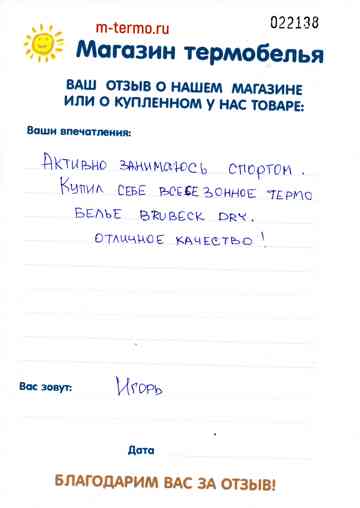 m-termo.ru
022138
Магазин термобелья
ВАШ ОТЗЫВ О НАШЕМ МАГАЗИНЕ
ИЛИ О КУПЛЕННОМ У НАС ТОВАРЕ:
Ваши впечатления:
АКТИВНО ЗАНИМАЮСЬ СПОРТОМ.
КУПИЛ СЕБЕ ВСЕСЕЗОННОЕ ТЕРМО
БЕЛЬЕ BRUBECK DRY.
ОТЛИЧНОЕ КАЧЕСТВО!
Вас зовут: ИГОРЬ
Дата
БЛАГОДАРИМ ВАС ЗА ОТЗЫВ!